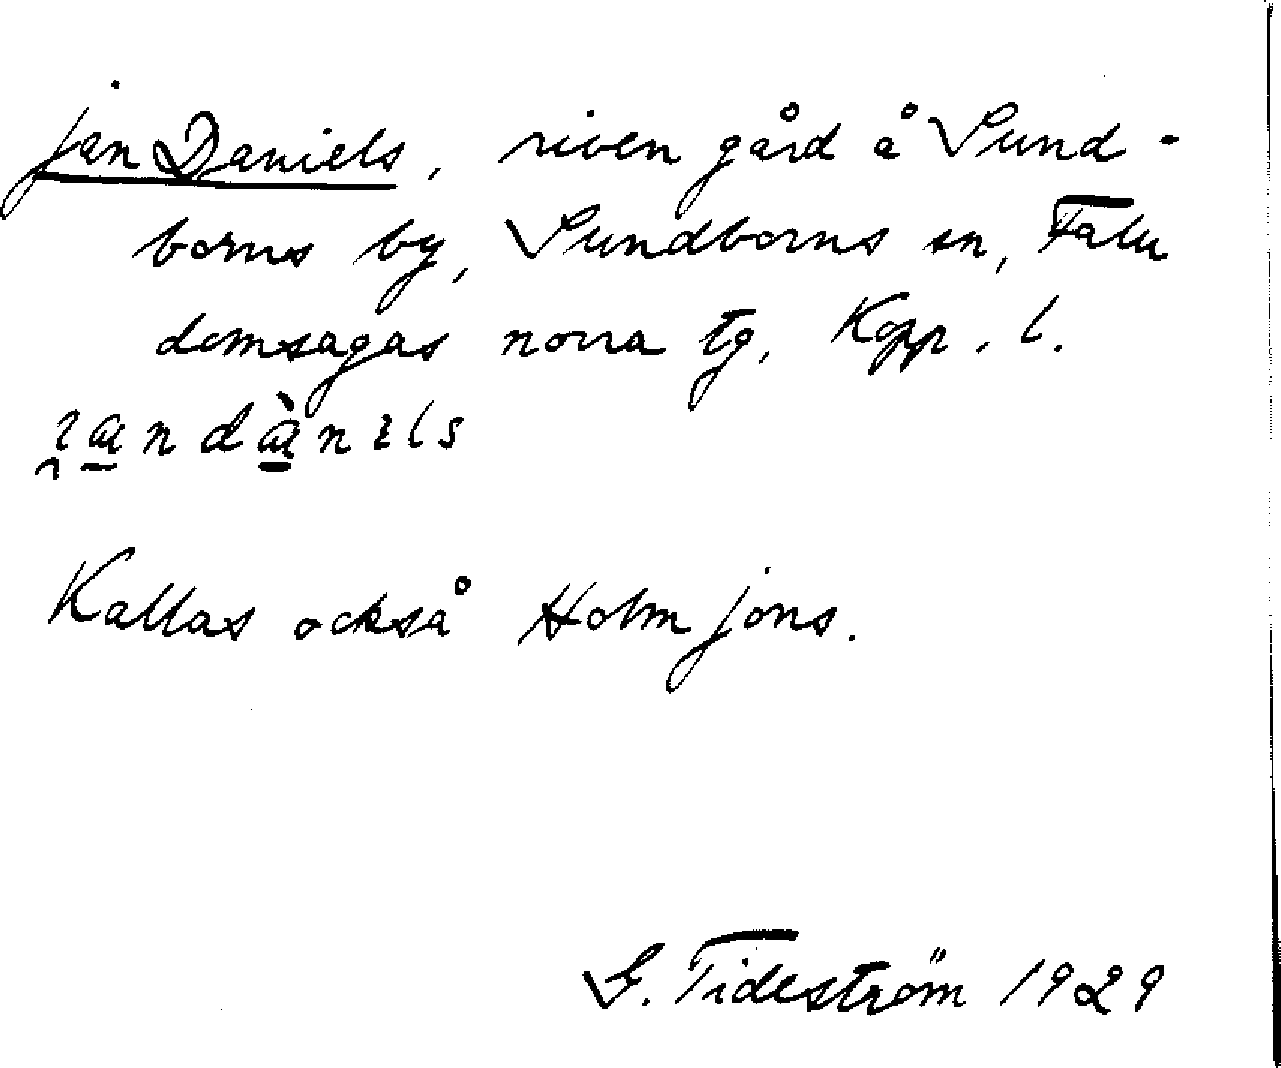 jan Daniels, riven gård å Sund-
borns by, Sundborns sn, Falu
domsagas norra tg, Kopp. l.
Kallas också Holm jons.
G. Tideström 1929